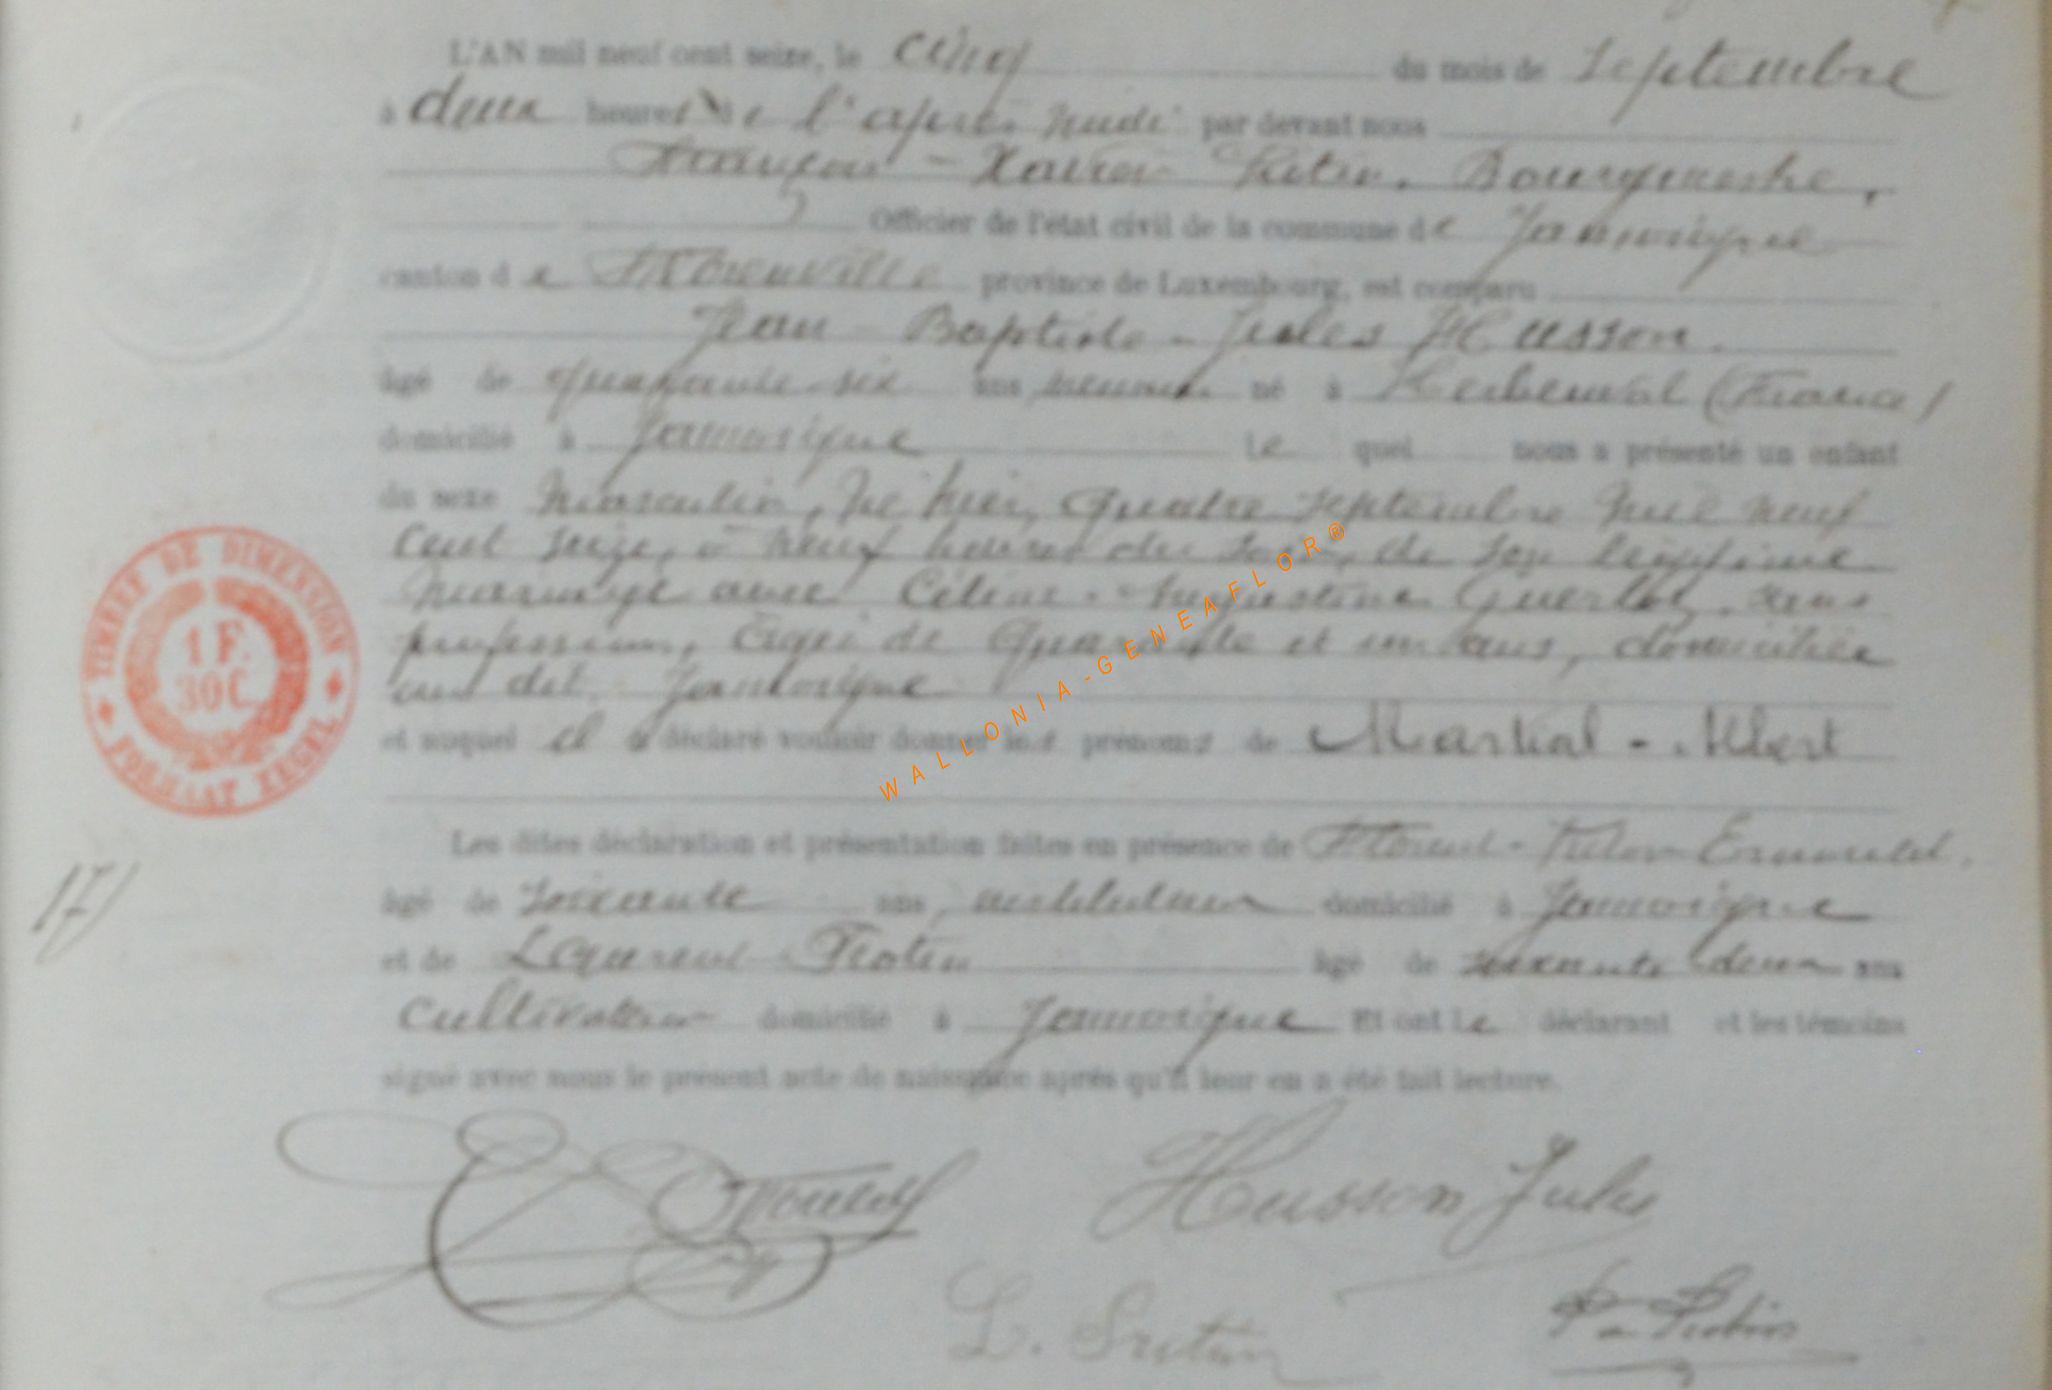 L'AN mil neuf cent seize, le cinq du mois de Septembre
à deux heures de l'après midi par devant nous
François - Xavier Bourgmestre,
Officier de l'état civil de la commune de Jamoigne
canton de Florenville province de Luxembourg, est comparu
Jean - Baptiste - Jules Husson.
âgé de quarante six ans né à Herbeuval (France)
domicilié à Jamoigne le quel nous a présenté un enfant
du sexe masculin, né hier, quatre septembre mil neuf
cent seize, à neuf heures du soir, de son légitime
mariage avec Céline - sans
profession, âgée de quarante et un ans, domiciliée
au dit Jamoigne
et auquel il a déclaré vouloir donner les prénoms de Martial - Albert
Les dites déclaration et présentation faites en présence de
âgé de soixante ans, instituteur domicilié à Jamoigne
et de Laurent âgé de soixante deux ans
cultivateur domicilié à Jamoigne Et ont le déclarant et les témoins
signé avec nous le présent acte de naissance après qu'il leur en a été fait lecture.
TIMBRE DE DIMENSION
1 F.
30 C.
FORMAAT ZEGEL
17)
WALLONIA-GENEAFLOR®
Husson Jules
L.